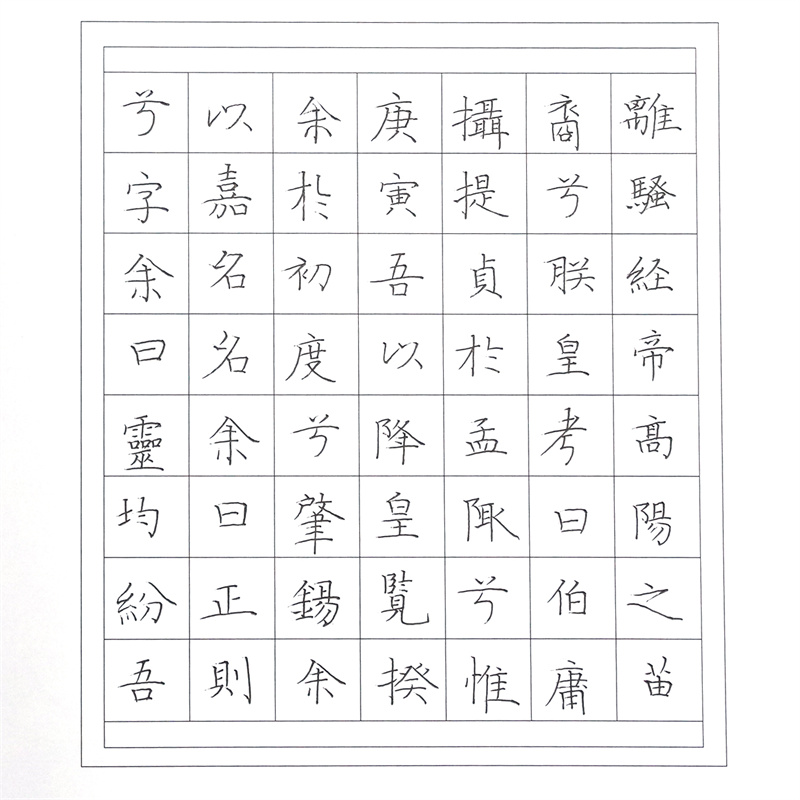 離騷経帝髙陽之苗
裔兮朕皇考曰伯庸
攝提貞於孟陬兮惟
庚寅吾以降皇覧揆
余於初度兮肇錫余
以嘉名名余曰正則
兮字余曰靈均紛吾